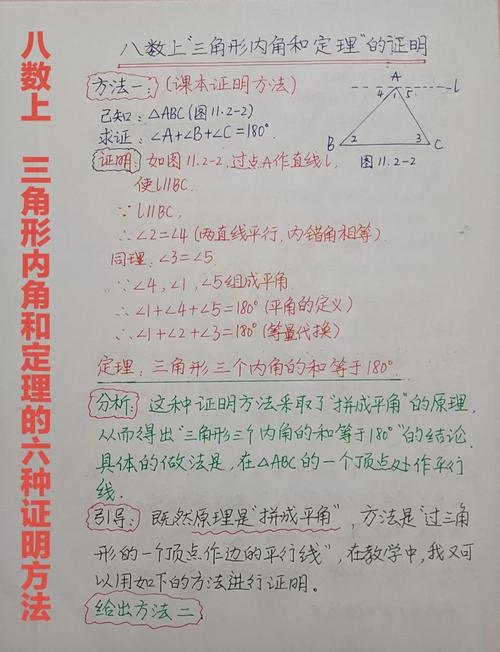 八数上 三角形内角和定理的六种证明方法
八数上"三角形内角和定理"的证明
方法一:(课本证明方法)
已知:△ABC(图11.2-2)
求证:∠A+∠B+∠C=180°
A
4 1 5 l
B 2 3 C
图11.2-2
证明:如图11.2-2,过点A作直线l,
使l∥BC.
∵l∥BC,
∴∠2=∠4(两直线平行,内错角相等).
同理:∠3=∠5.
∵∠4,∠1,∠5组成平角
∴∠1+∠4+∠5=180°(平角的定义)
∴∠1+∠2+∠3=180°(等量代换)
定理:三角形三个内角的和等于180°.
分析:这种证明方法采取了"拼成平角"的原理,
从而得出"三角形三个内角的和等于180°"的结论.
具体的做法是,在△ABC的一个顶点处作平行
线.
引导:既然原理是"拼成平角",方法是"过三角
形的一个顶点作边的平行线",在教学中,我又可
以用如下的方法进行证明。
给出方法二